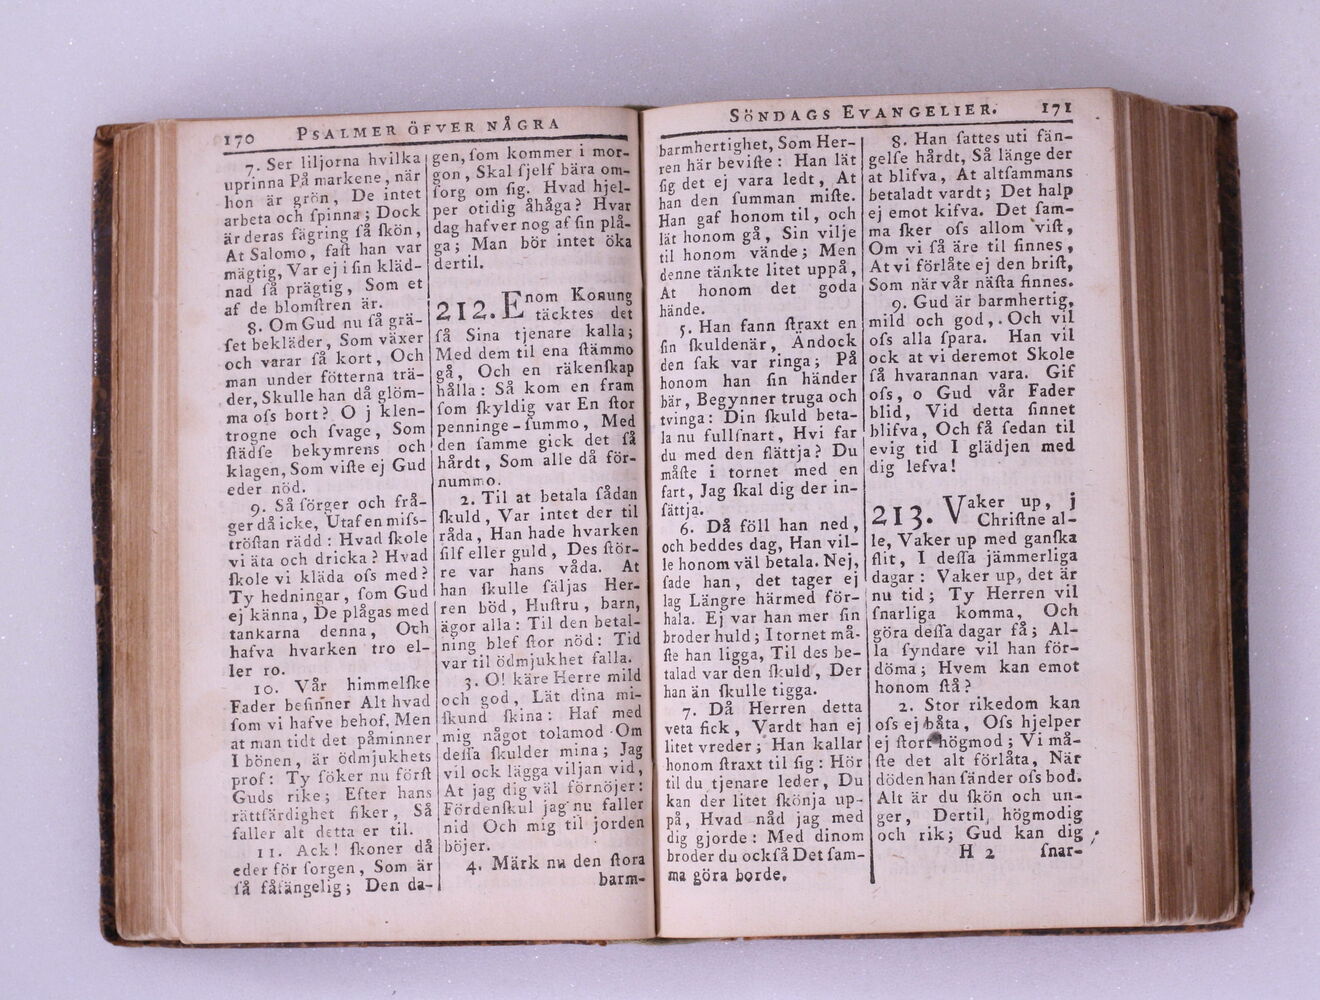 170 PSALMER ÖFVER NÅGRA
7. Ser liljorna hvilka
uprinna På markene, når
hon är grön, De intet
arbeta och ſpinna; Dock
är deras fägring ſå ſkön,
At Salomo, faſt han var
mägtig, Var ej i ſin kläd-
nad ſå prägtig, Som et
af de blomſtren är.
8. Om Gud nu ſå grä-
ſet bekläder, Som växer
och varar ſå kort, Och
man under fötterna trä-
der, Skulle han då glöm-
ma oſs bort? O j klen-
trogne och ſvage, Som
ſtädſe bekymrens och
klagen, Som viſte ej Gud
eder nöd.
9. Så ſörger och frå-
ger då icke, Utaf en miſs-
tröſtan rädd: Hvad ſkole
vi äta och dricka? Hvad
ſkole vi kläda oſs med?
Ty hedningar, ſom Gud
ej känna, De plågas med
tankarna denna, Och
hafva hvarken tro el-
ler ro.
10. Vår himmelſke
Fader beſinner Alt hvad
ſom vi hafve behof, Men
at man tidt det påminner
I bönen, är ödmjukhets
prof: Ty ſöker nu förſt
Guds rike; Efter hans
rättfärdighet fiker, Så
faller alt detta er til.
11. Ack! ſkoner då
eder för ſorgen, Som är
ſå fåfängelig; Den da-
gen, ſom kommer i mor-
gon, Skal ſjelf bära om-
ſorg om ſig. Hvad hjel-
per otidig åhåga? Hvar
dag hafver nog af ſin plå-
ga; Man bör intet öka
dertil.
212. Enom Konung
täcktes det
ſå Sina tjenare kalla;
Med dem til ena ſtämmo
gå, Och en räkenſkap
hålla: Så kom en fram
ſom ſkyldig var En ſtor
penninge-ſummo, Med
den ſamme gick det ſå
hårdt, Som alle då för-
nummo.
2. Til at betala ſådan
ſkuld, Var intet der til
råda, Han hade hvarken
ſilf eller guld, Des ſtör-
re var hans våda. At
han ſkulle ſäljas Her-
ren böd, Huſtru, barn,
ägor alla: Til den betal-
ning blef ſtor nöd: Tid
var til ödmjukhet falla.
3. O! käre Herre mild
och god, Lät dina mi-
ſkund ſkina: Haf med
mig något tolamod Om
deſſa ſkulder mina; Jag
vil ock lägga viljan vid,
At jag dig väl förnöjer:
Fördenſkul jag nu faller
nid Och mig til jorden
böjer.
4. Märk nu den ſtora
barm-
SÖNDAGS EVANGELIER. 171
barmhertighet, Som Her-
ren här beviſte: Han lät
ſig det ej vara ledt, At
han den ſumman miſte.
Han gaf honom til, och
lät honom gå, Sin vilje
til honom vände; Men
denne tänkte litet uppå,
At honom det goda
hände.
5. Han fann ſtraxt en
ſin ſkuldenär, Ändock
den ſak var ringa; På
honom han ſin händer
bär, Begynner truga och
tvinga: Din ſkuld beta-
la nu fullſnart, Hvi far
du med den ſlättja? Du
måſte i tornet med en
fart, Jag ſkal dig der in-
ſättja.
6. Då föll han ned,
och beddes dag, Han vil-
le honom väl betala. Nej,
ſade han, det tager ej
lag Längre härmed för-
hala. Ej var han mer ſin
broder huld; I tornet må-
ſte han ligga, Til des be-
talad var den ſkuld, Der
han än ſkulle tigga.
7. Då Herren detta
veta fick, Vardt han ej
litet vreder; Han kallar
honom ſtraxt til ſig: Hör
til du tjenare leder, Du
kan der litet ſkönja up-
på, Hvad nåd jag med
dig gjorde: Med dinom
broder du ockſå Det ſam-
ma göra borde.
8. Han ſattes uti fän-
gelſe hårdt, Så länge der
at blifva, At altſammans
betaladt vardt; Det halp
ej emot kifva. Det ſam-
ma ſker oſs allom viſt,
Om vi ſå äre til ſinnes,
At vi förlåte ej den briſt,
Som när vår näſta finnes.
9. Gud är barmhertig,
mild och god, Och vil
oſs alla ſpara. Han vil
ock at vi deremot Skole
ſå hvarannan vara. Gif
oſs, o Gud vår Fader
blid, Vid detta ſinnet
blifva, Och få ſedan til
evig tid I glädjen med
dig lefva!
213. Vaker up, j
Chriſtne al-
le, Vaker up med ganſka
flit, I deſſa jämmerliga
dagar: Vaker up, det är
nu tid; Ty Herren vil
ſnarliga komma, Och
göra deſſa dagar få; Al-
la ſyndare vil han för-
döma; Hvem kan emot
honom ſtå?
2. Stor rikedom kan
oſs ej båta, Oſs hjelper
ej ſtort högmod; Vi må-
ſte det alt förlåta, När
döden han ſänder oſs bod.
Alt är du ſkön och un-
ger, Dertil, högmodig
och rik; Gud kan dig
H 2 ſnar-